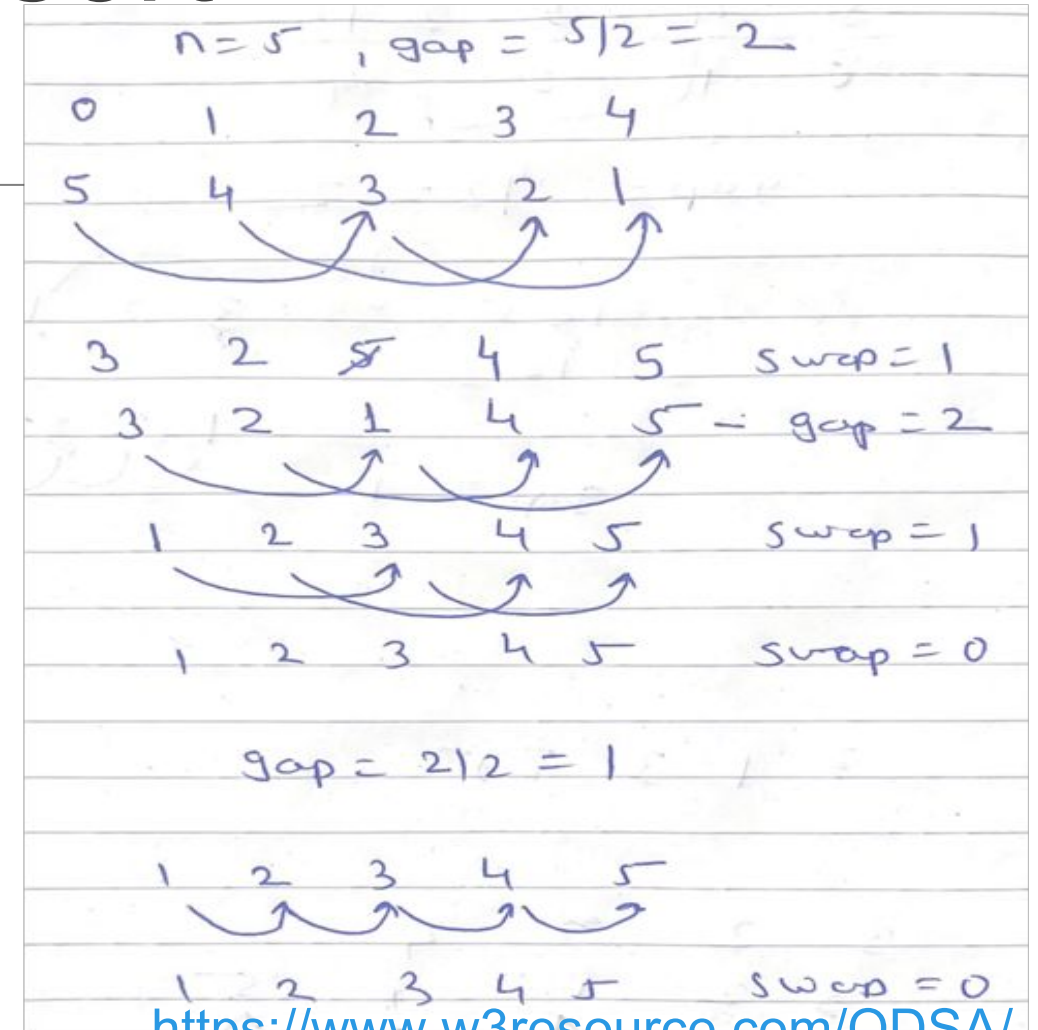 n = 5 , gap = 5/2 = 2
0 1 2 3 4
5 4 3 2 1
3 2 5 4 5 swap = 1
3 2 1 4 5 - gap = 2
1 2 3 4 5 swap = 1
1 2 3 4 5 swap = 0
gap = 2/2 = 1
1 2 3 4 5
1 2 3 4 5 swap = 0
https://www.w3resource.com/ODSA/